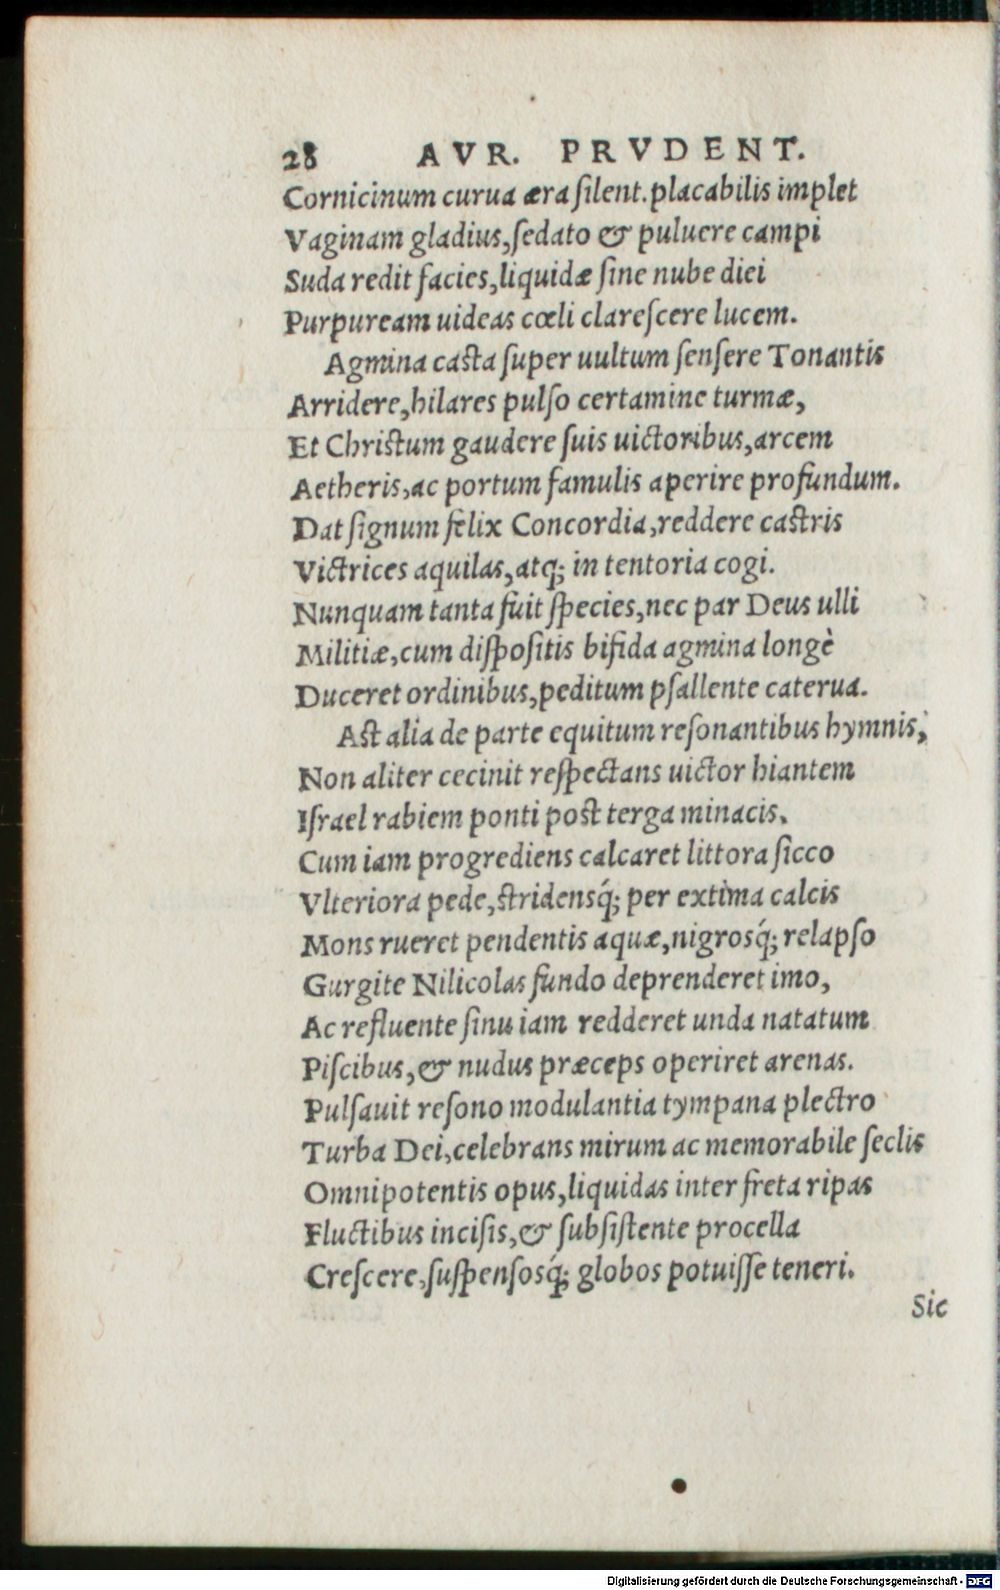 28 AVR. PRVDENT.
Cornicinum curua æra ſilent. placabilis implet
Vaginam gladius, ſedato & puluere campi
Suda redit facies, liquidæ ſine nube diei
Purpuream uideas cœli clareſcere lucem.
Agmina caſta ſuper uultum ſenſere Tonantis
Arridere, hilares pulſo certamine turmæ,
Et Chriſtum gaudere ſuis uictoribus, arcem
Aetheris, ac portum famulis aperire profundum.
Dat ſignum felix Concordia, reddere caſtris
Victrices aquilas, atq; in tentoria cogi.
Nunquam tanta fuit ſpecies, nec par Deus ulli
Militiæ, cum diſpoſitis bifida agmina longè
Duceret ordinibus, peditum pſallente caterua.
Aſt alia de parte equitum reſonantibus hymnis,
Non aliter cecinit reſpectans uictor hiantem
Iſrael rabiem ponti poſt terga minacis,
Cum iam progrediens calcaret littora ſicco
Vlteriora pede, ſtridensq́; per extima calcis
Mons rueret pendentis aquæ, nigrosq́; relapſo
Gurgite Nilicolas fundo deprenderet imo,
Ac refluente ſinu iam redderet unda natatum
Piſcibus, & nudus præceps operiret arenas.
Pulſauit reſono modulantia tympana plectro
Turba Dei, celebrans mirum ac memorabile ſeclis
Omnipotentis opus, liquidas inter freta ripas
Fluctibus inciſis, & ſubſiſtente procella
Creſcere, ſuſpenſosq́; globos potuiſſe teneri.
Sic
Digitalisierung gefördert durch die Deutsche Forschungsgemeinschaft - DFG